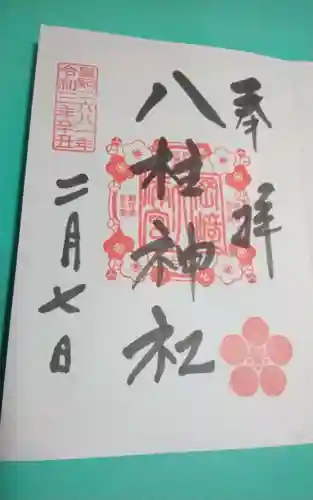 奉拝
八柱神社
二月七日
皇紀二六八一年
令和三年辛丑